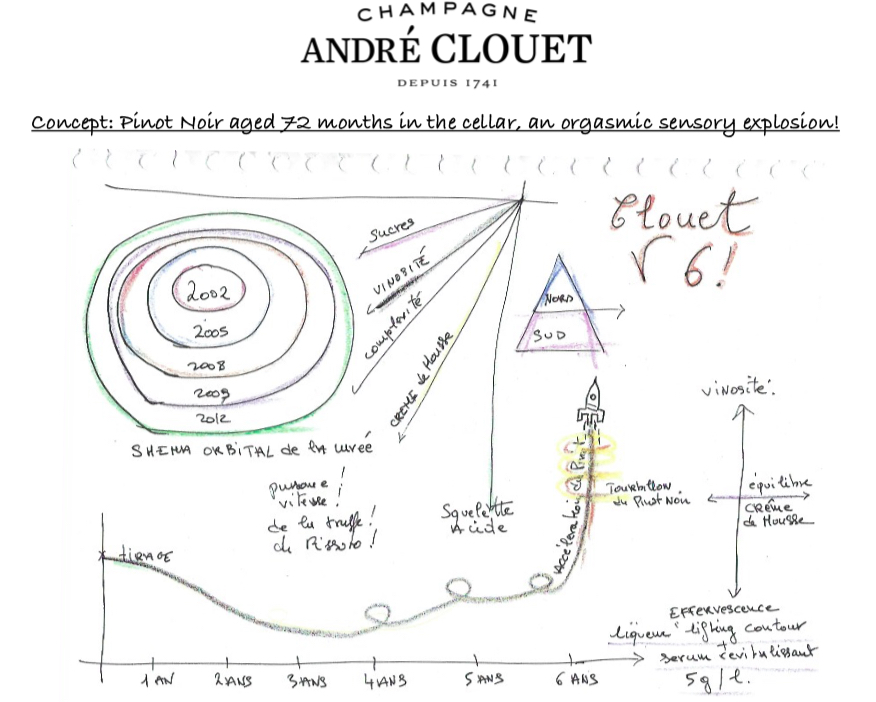 CHAMPAGNE
ANDRÉ CLOUET
DEPUIS 1741
Concept: Pinot Noir aged 72 months in the cellar, an orgasmic sensory explosion!
Clouet
V 6!
Sucres
VINOSITÉ
Complexité
CRÈME de Mousse
2002
2005
2008
2009
2012
SHEMA ORBITAL de la
NORD
SUD
vitesse!
de la truffe!
Squelette
Acide
Accéleration du Pinot
Tourbillon
du Pinot Noir
VINOSITÉ.
équilibre
CRÈME
de Mousse
EFFERVESCENCE
liqueur "lifting contour
+
serum revitalissant
5g/l.
TIRAGE
1 AN
2 ANS
3 ANS
4 ANS
5 ANS
6 ANS